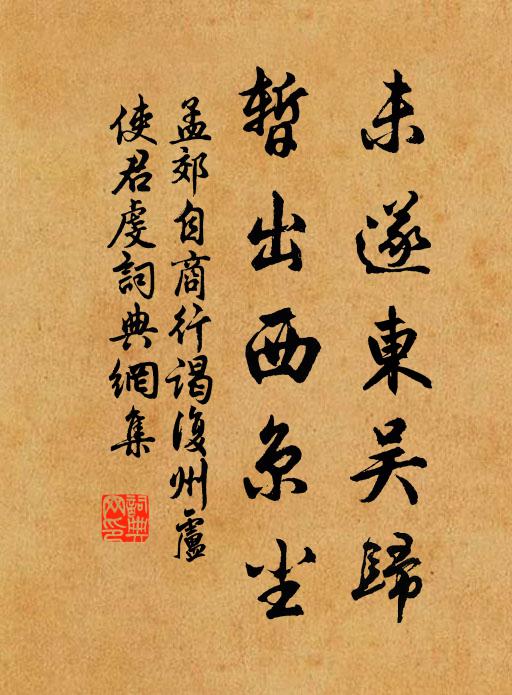 未遂東吳歸
暫出西京尘
孟郊自商行謁復州盧
使君虔詞典網集
詞典網印